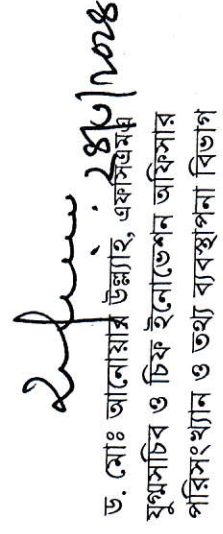 ড. মোঃ আনোয়ার উল্ল্যাহ, এফসিএমএ
যুগ্মসচিব ও চিফ ইনোভেশন অফিসার
পরিসংখ্যান ও তথ্য ব্যবস্থাপনা বিভাগ